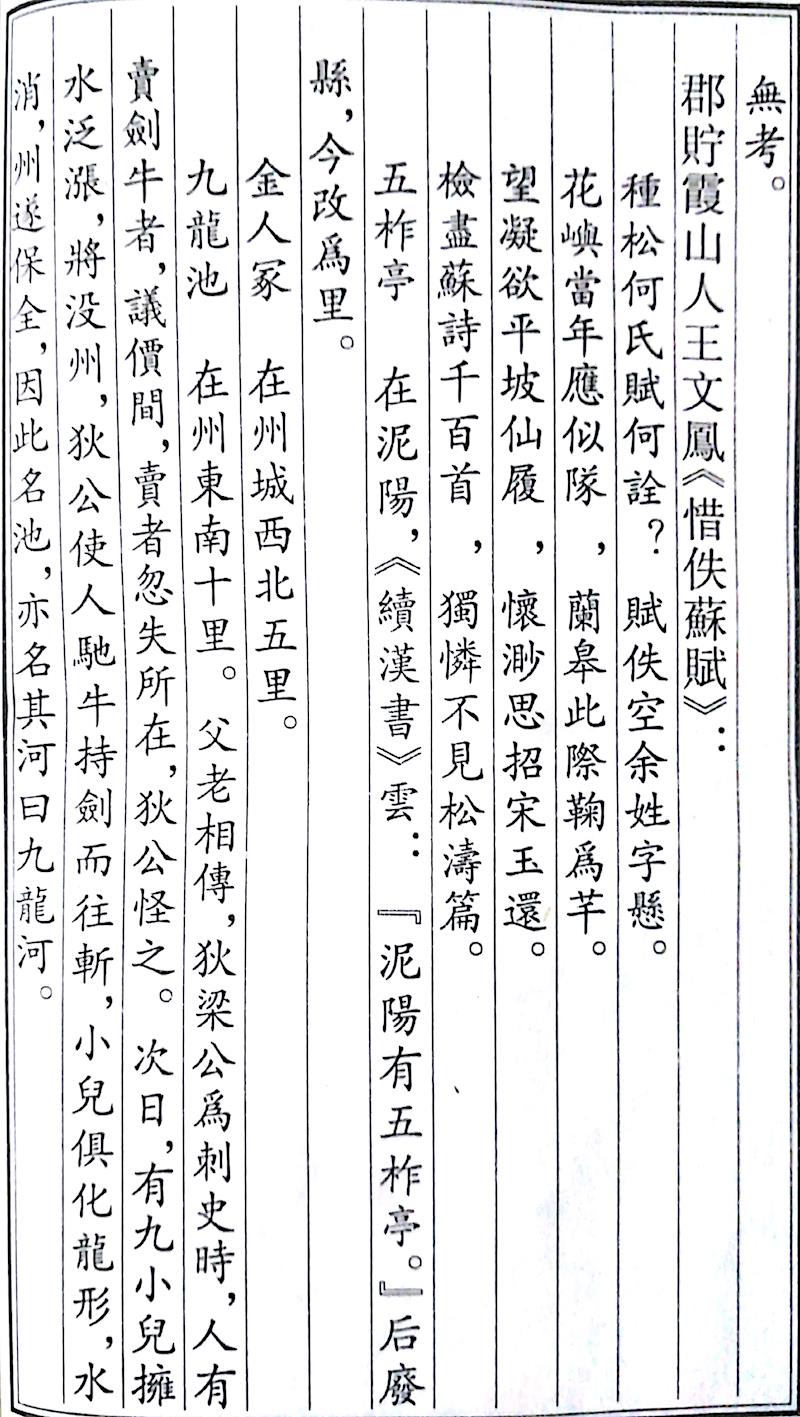 無考。
郡貯霞山人王文鳳《惜佚蘇賦》：
種松何氏賦何詮？賦佚空余姓字懸。
花嶼當年應似隊，蘭皋此際鞠爲芊。
望凝欲平坡仙履，懷渺思招宋玉還。
檢盡蘇詩千百首，獨憐不見松濤篇。
五柞亭　在泥陽，《續漢書》雲：『泥陽有五柞亭。』后廢
縣，今改爲里。
金人冢　在州城西北五里。
九龍池　在州東南十里。父老相傳，狄梁公爲刺史時，人有
賣劍牛者，議價間，賣者忽失所在，狄公怪之。次日，有九小兒擁
水泛漲，將没州，狄公使人馳牛持劍而往斬，小兒俱化龍形，水
消，州遂保全，因此名池，亦名其河曰九龍河。